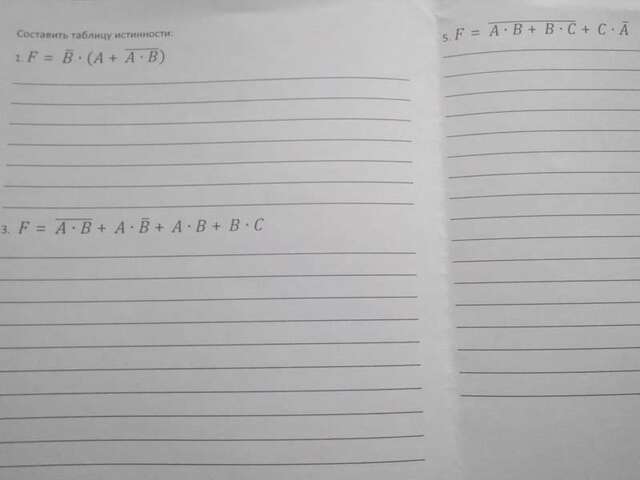 Составить таблицу истинности:
1. F = B̅ · (A + A̅ ̅·̅ ̅B̅)
3. F = A̅ ̅·̅ ̅B̅ + A · B̅ + A · B + B · C
5. F = A̅ ̅·̅ ̅B̅ ̅+̅ ̅B̅ ̅·̅ ̅C̅ + C · A̅